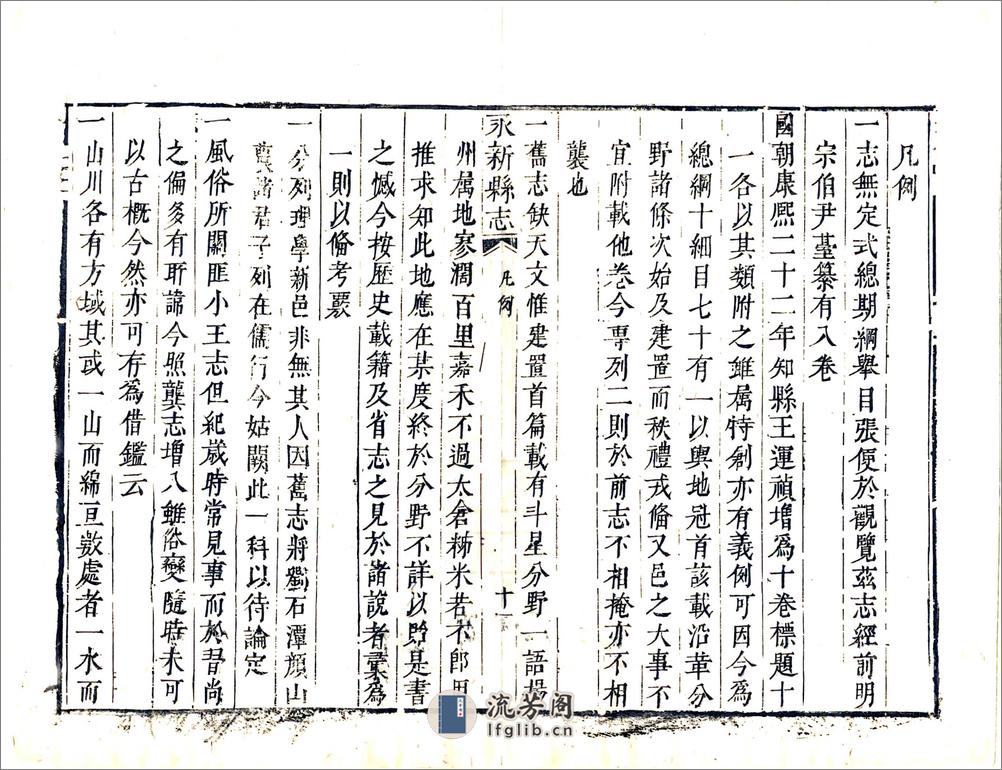 凡例
一志無定式總期綱舉目張便於觀覽茲志經前明
宗伯尹臺纂有八卷
國朝康熙二十二年知縣王運禎增為十卷標題十
一各以其類附之雖属特創亦有義例可因今為
總綱十細目七十有一以輿地冠首該載沿革分
野諸條次始及建置而秩禮戎備又邑之大事不
宜附載他卷今専列二則於前志不相掩亦不相
襲也
一舊志缺天文惟建置首篇載有斗星分野一語揚
永新縣志 凡例 十一
州属地寥濶百里嘉禾不過太倉稊米若不即
推求知此地應在某度終於分野不詳以貽是書
之憾今按歷史載籍及省志之見於諸說者彙為
一則以俻考覈
一分列理學新邑非無其人因舊志將濁石潭顔山
龔諸君子列在儒行今姑闕此一科以待論定
一風俗所關匪小王志但紀歲時常見事而於習尚
之偏多有所諱今照龔志增入雖俗變隨時未可
以古概今然亦可存為借鑑云
一山川各有方域其或一山而綿亘数處者一水而
流芳阁
lfglib.cn